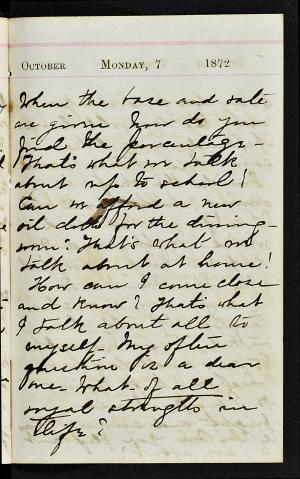 October Monday, 7 1872
When the base and rate
are given how do you
find the percentage -
That's what we talk
about up to school!
Can we afford a new
oil cloth for the dining-
room? That's what we
talk about at home!
How can I come close
and know? That's what
I talk about all to
myself. My often
question is a dear
one - What - of all
strengths in
life?